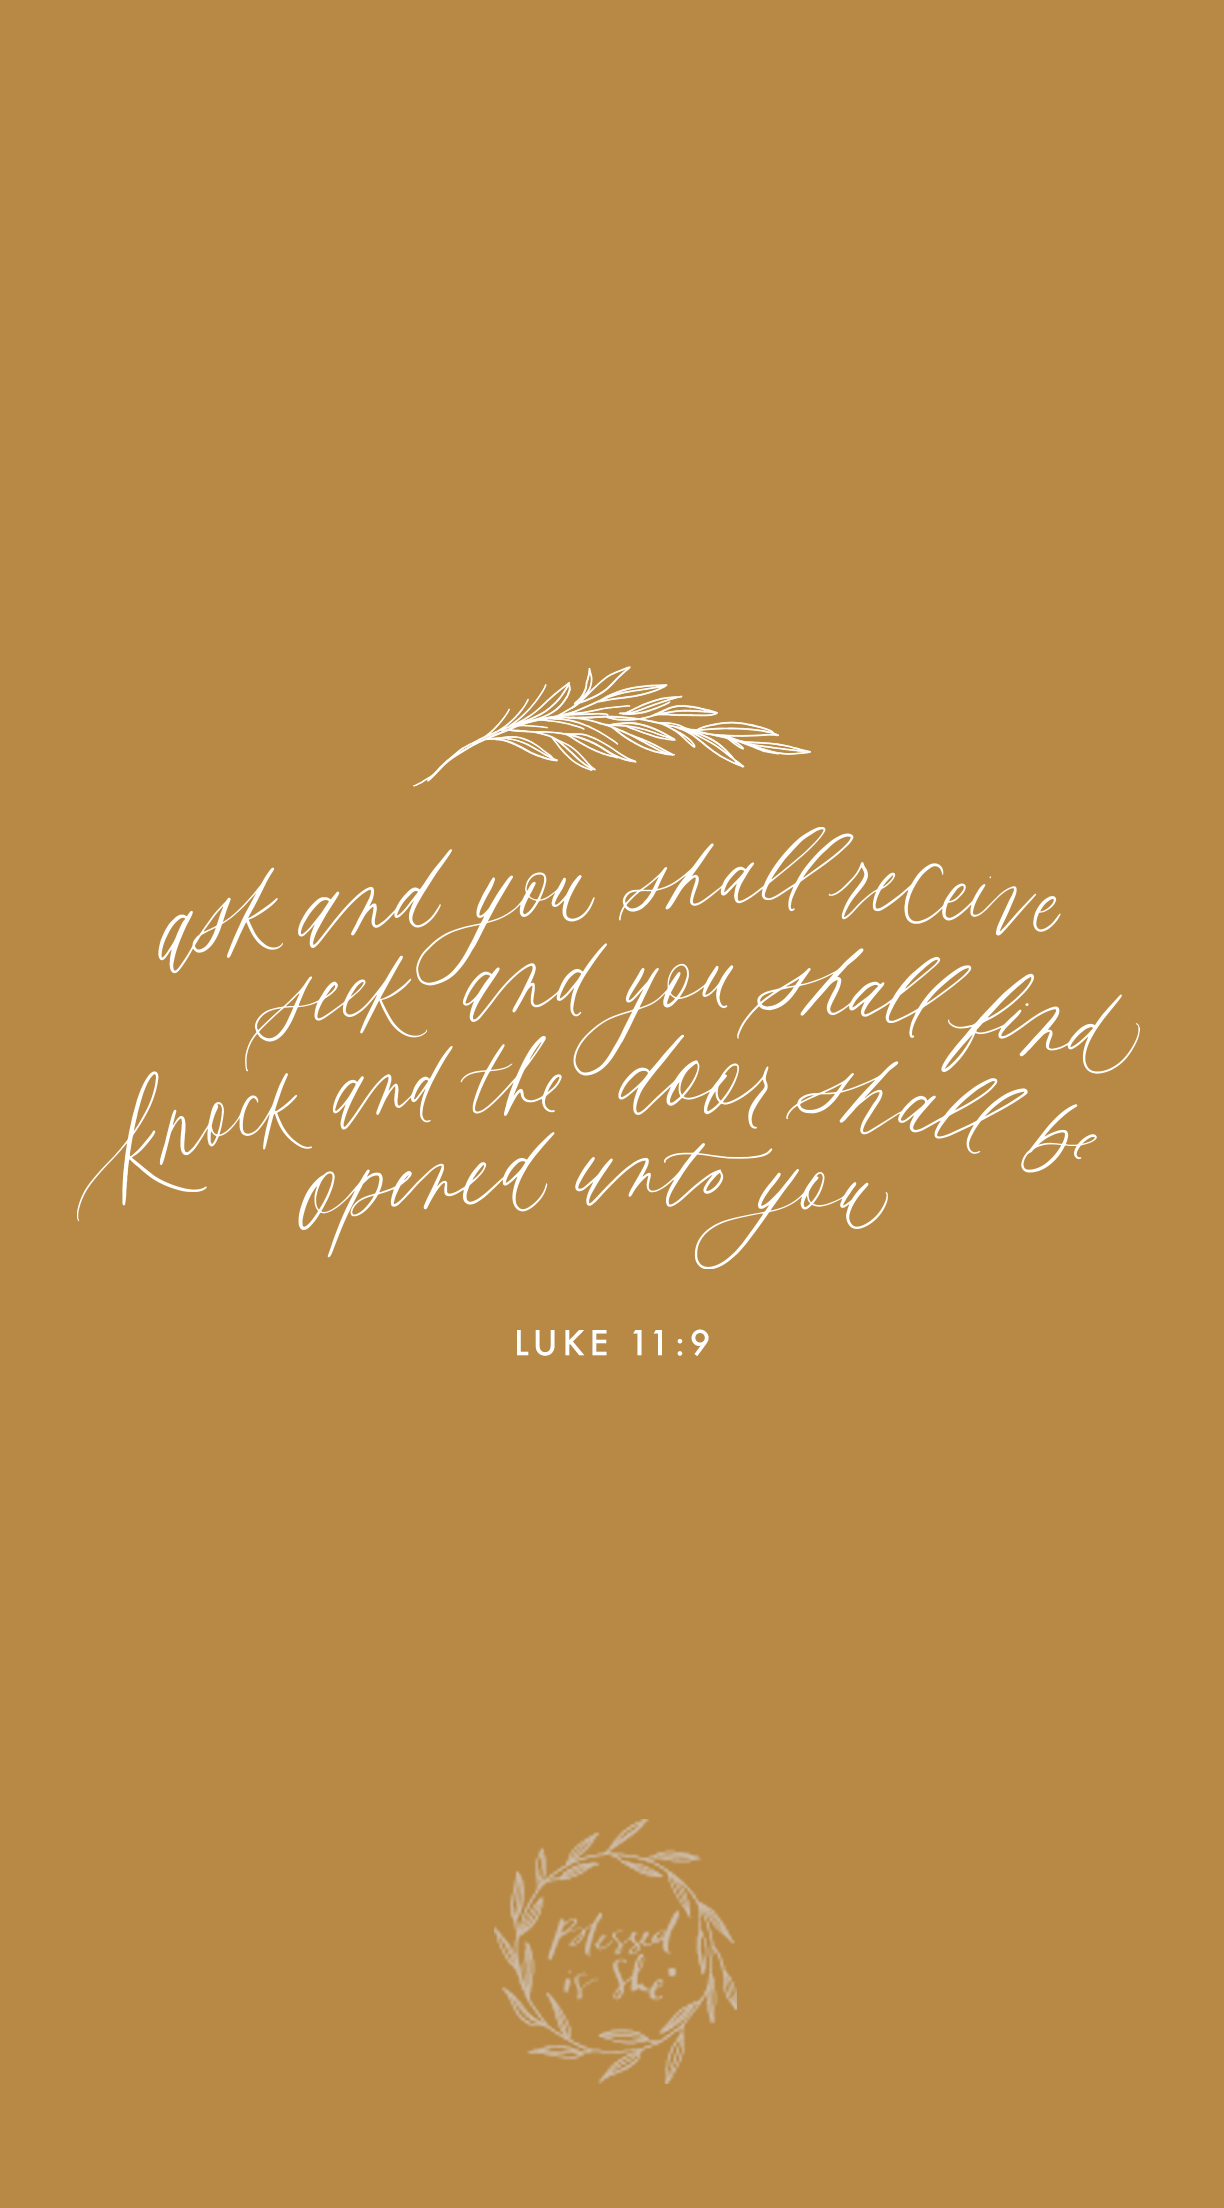 ask and you shall receive
seek and you shall find
knock and the door shall be
opened unto you
LUKE 11:9
Blessed
is She